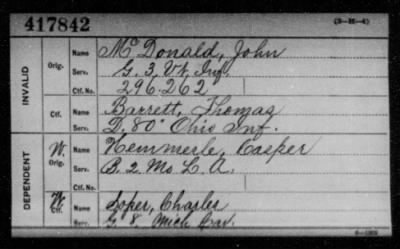 417842
(3-H-4)
INVALID
Orig.
Name McDonald, John
Serv. G. 3, Vt. Inf.
Ctf. No. 296.262
Ctf.
Name Barrett, Thomas
Serv. D. 80" Ohio Inf.
DEPENDENT
W.
Orig.
Name Kemmerle, Casper
Serv. B. 2 Mo L. A.
Ctf. No.
W.
Ctf.
Name Soper, Charles
Serv. G 8. Mich Cav.